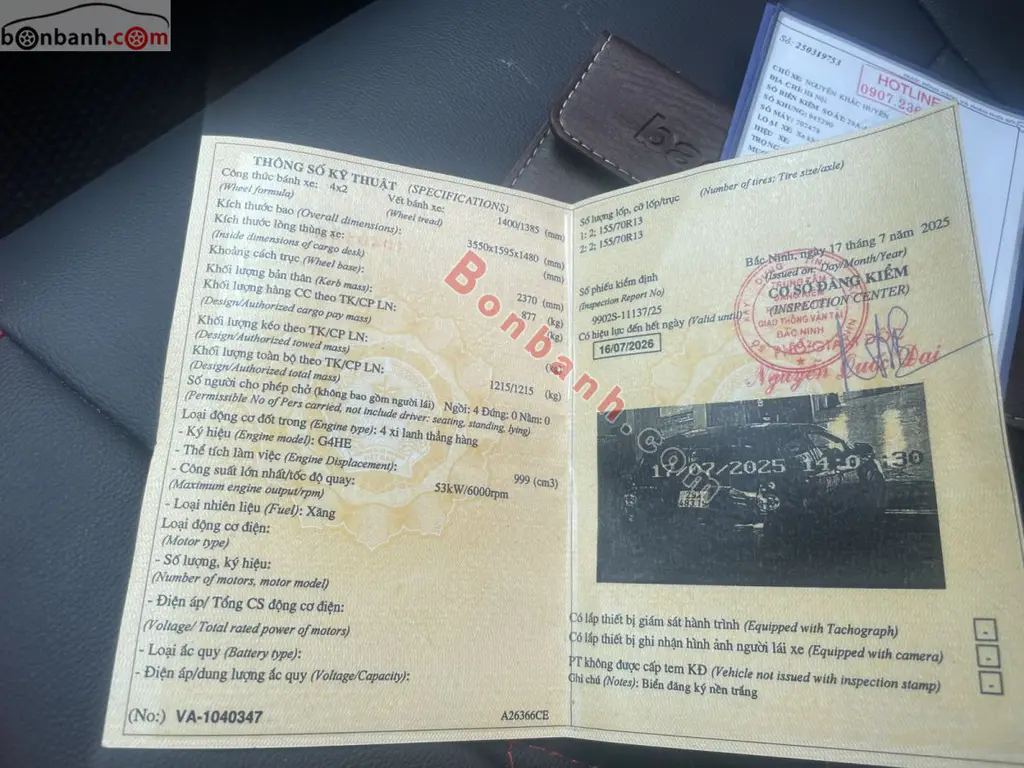 bonbanh.com
Số: 250319753
HOTLINE
CHỦ XE: NGUYỄN KHẮC HUYÊN
0907 238
ĐỊA CHỈ: Hà Nội
SỐ BIỂN KIỂM SOÁT:
SỐ KHUNG:
SỐ MÁY:
LOẠI XE:
HIỆU XE:
THÔNG SỐ KỸ THUẬT (SPECIFICATIONS)
Công thức bánh xe: 4x2 Vết bánh xe: 1400/1385 (mm)
(Wheel formula) (Wheel tread)
Kích thước bao (Overall dimensions): 3550x1595x1480 (mm)
Kích thước lòng thùng xe: (mm)
(Inside dimensions of cargo desk)
Khoảng cách trục (Wheel base): 2370 (mm)
Khối lượng bản thân (Kerb mass): 877 (kg)
Khối lượng hàng CC theo TK/CP LN: (kg)
(Design/Authorized cargo pay mass)
Khối lượng kéo theo TK/CP LN: (kg)
(Design/Authorized towed mass)
Khối lượng toàn bộ theo TK/CP LN: 1215/1215 (kg)
(Design/Authorized total mass)
Số người cho phép chở (không bao gồm người lái) Ngồi: 4 Đứng: 0 Nằm: 0
(Permissible No of Pers carried, not include driver: seating, standing, lying)
Loại động cơ đốt trong (Engine type): 4 xi lanh thẳng hàng
- Ký hiệu (Engine model): G4HE
- Thể tích làm việc (Engine Displacement): 999 (cm3)
- Công suất lớn nhất/tốc độ quay: 53kW/6000rpm
(Maximum engine output/rpm)
- Loại nhiên liệu (Fuel): Xăng
Loại động cơ điện:
(Motor type)
- Số lượng, ký hiệu:
(Number of motors, motor model)
- Điện áp/ Tổng CS động cơ điện:
(Voltage/ Total rated power of motors)
- Loại ắc quy (Battery type):
- Điện áp/dung lượng ắc quy (Voltage/Capacity):
(No:) VA-1040347 A26366CE
Số lượng lốp, cỡ lốp/trục (Number of tires: Tire size/axle)
1: 2; 155/70R13
2: 2; 155/70R13
Bắc Ninh, ngày 17 tháng 7 năm 2025
(Issued on: Day/Month/Year)
Số phiếu kiểm định CƠ SỞ ĐĂNG KIỂM
(Inspection Report No) (INSPECTION CENTER)
9902S-11137/25
Có hiệu lực đến hết ngày (Valid until)
16/07/2026
TRUNG TÂM
GIAO THÔNG VẬN TẢI
BẮC NINH
Bonbanh.com
17/07/2025 14
30
Có lắp thiết bị giám sát hành trình (Equipped with Tachograph) -
Có lắp thiết bị ghi nhận hình ảnh người lái xe (Equipped with camera) -
PT không được cấp tem KĐ (Vehicle not issued with inspection stamp) -
Ghi chú (Notes): Biển đăng ký nền trắng